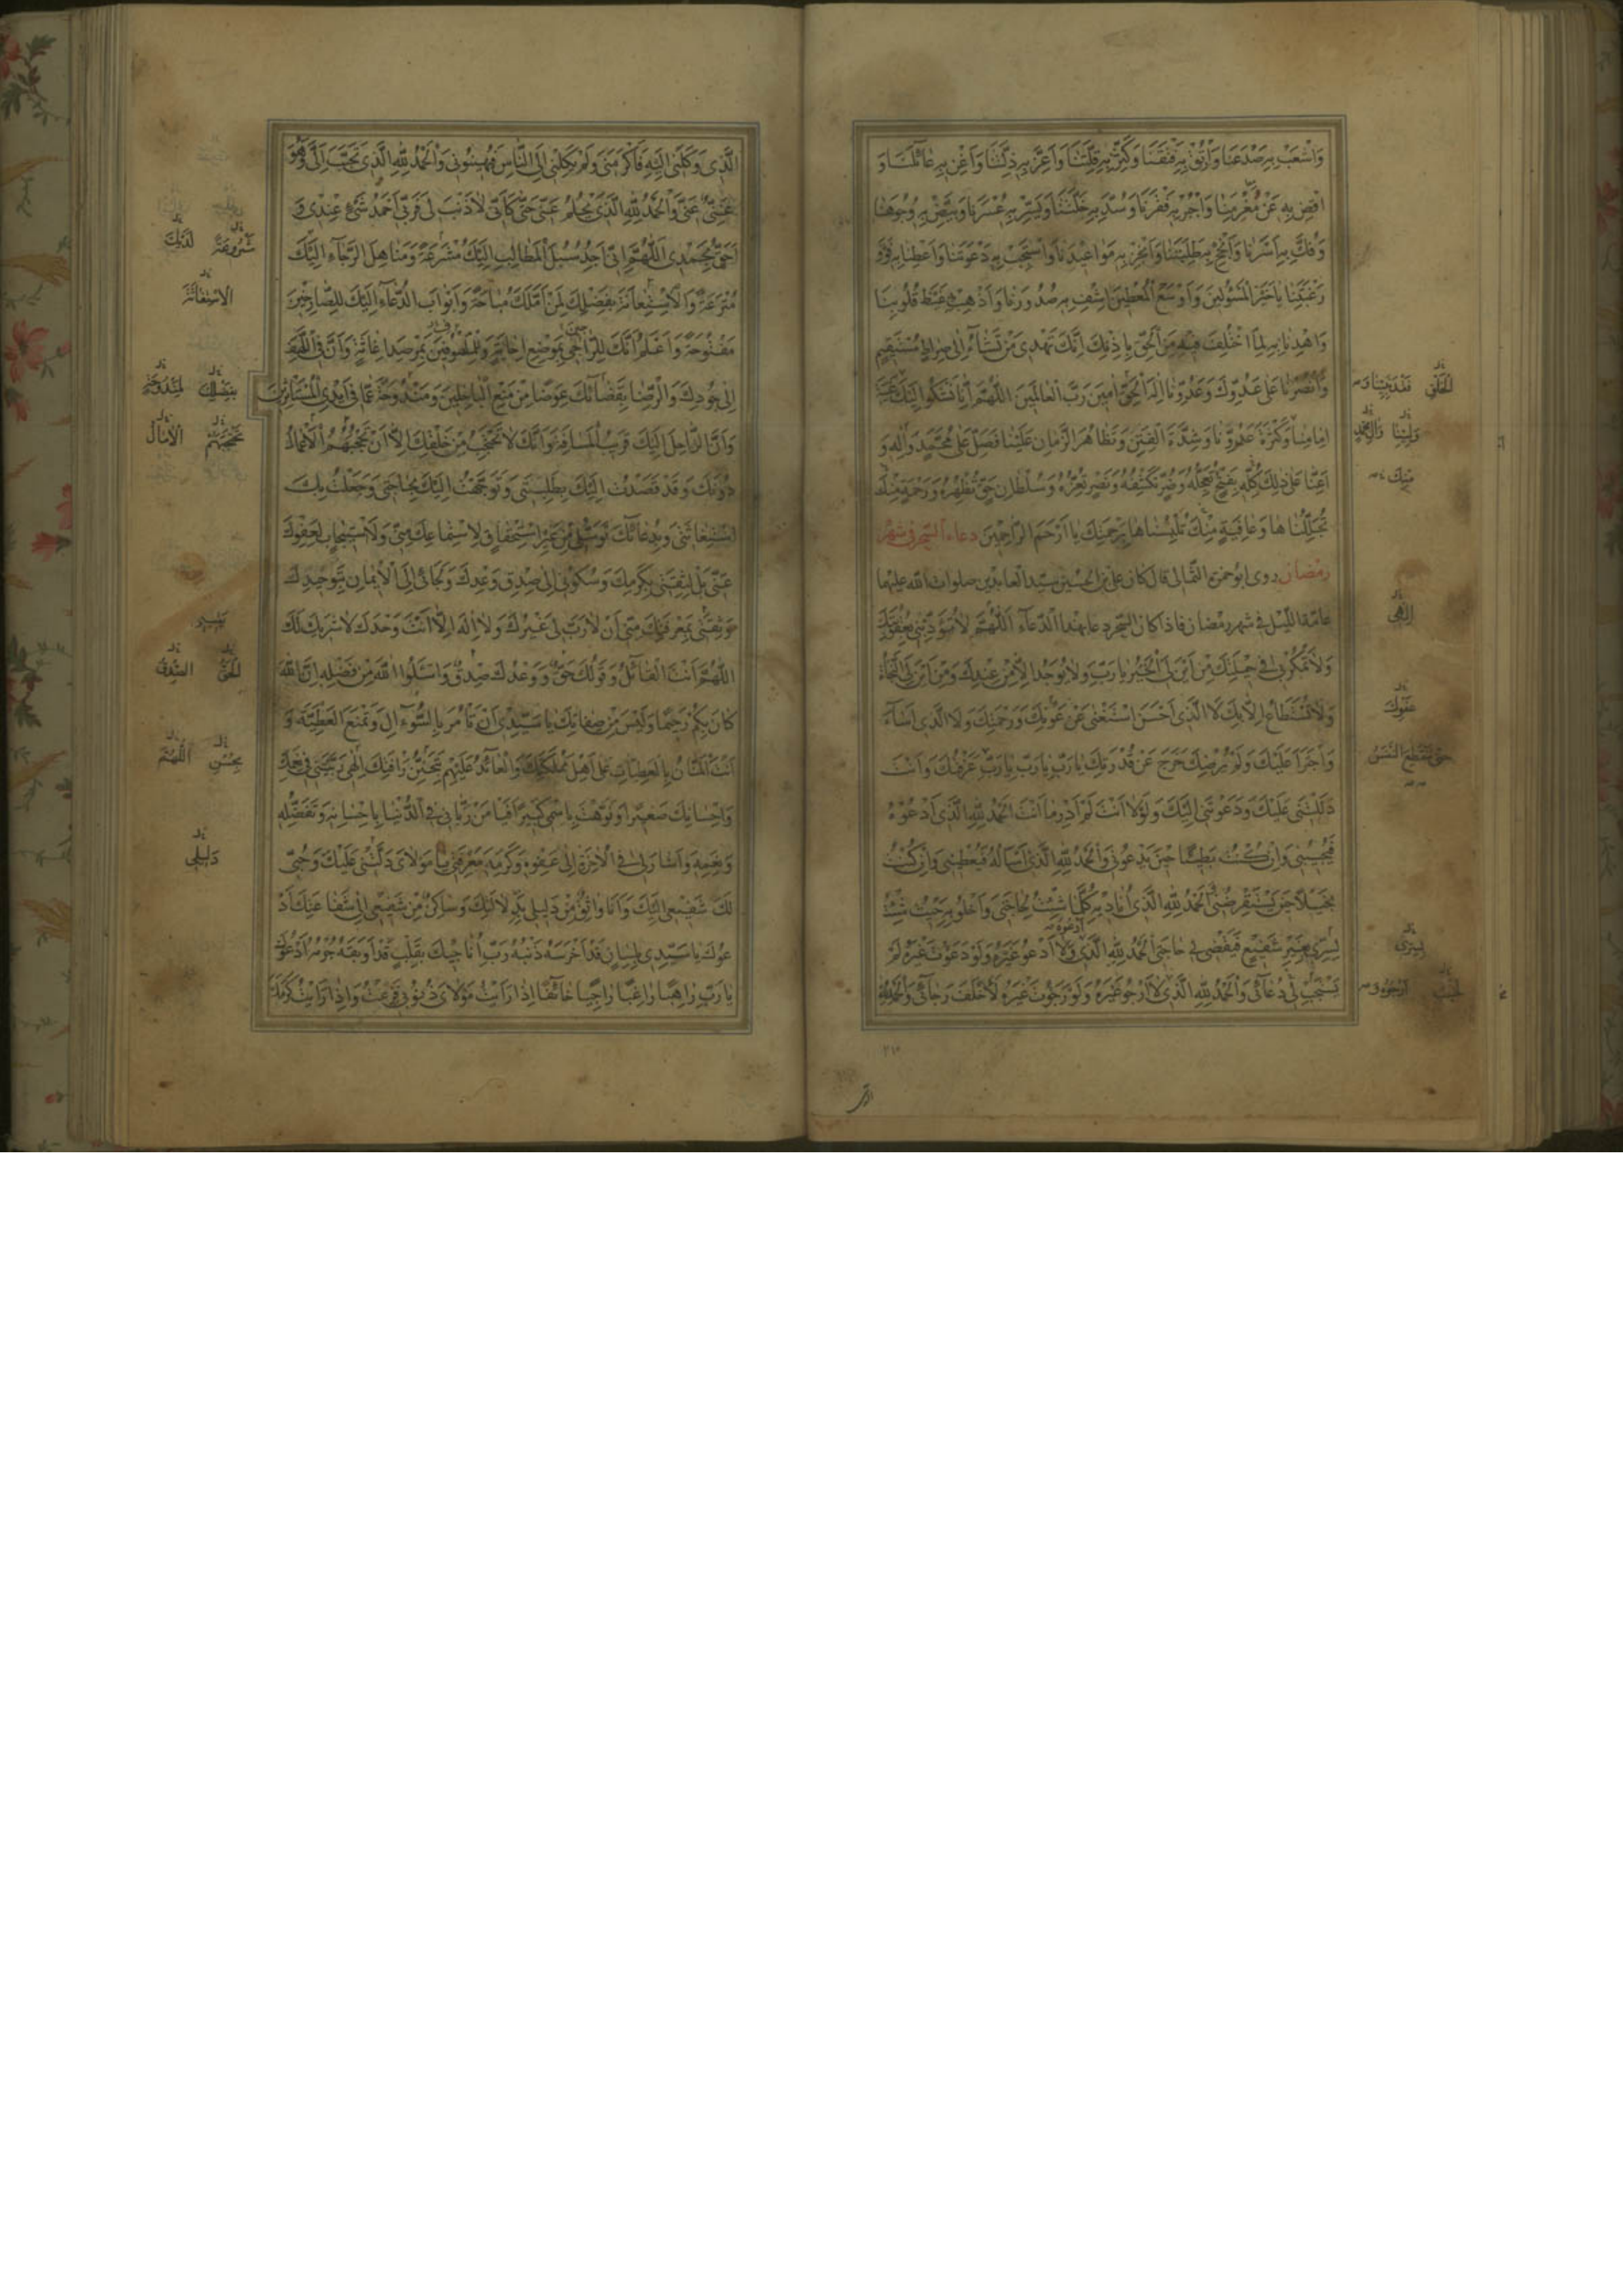 وَاشْعَبْ بِهِ صَدْعَنَا وَارْتُقْ بِهِ فَتْقَنَا وَكَثِّرْ بِهِ قِلَّتَنَا وَاَعِزَّ بِهِ ذِلَّتَنَا وَاَغْنِ بِهِ عَائِلَنَا وَ
اقْضِ بِهِ عَنْ مُغْرَمِنَا وَاجْبُرْ بِهِ فَقْرَنَا وَسُدَّ بِهِ خَلَّتَنَا وَيَسِّرْ بِهِ عُسْرَنَا وَبَيِّضْ بِهِ وُجُوهَنَا
وَفُكَّ بِهِ اَسْرَنَا وَاَنْجِحْ بِهِ طَلِبَتَنَا وَاَنْجِزْ بِهِ مَوَاعِيدَنَا وَاسْتَجِبْ بِهِ دَعْوَتَنَا وَاَعْطِنَا بِهِ فَوْقَ
رَغْبَتِنَا يَا خَيْرَ الْمَسْئُولِينَ وَاَوْسَعَ الْمُعْطِينَ اشْفِ بِهِ صُدُورَنَا وَاَذْهِبْ بِهِ غَيْظَ قُلُوبِنَا
وَاهْدِنَا بِهِ لِمَا اخْتُلِفَ فِيهِ مِنَ الْحَقِّ بِاِذْنِكَ اِنَّكَ تَهْدِي مَنْ تَشَاءُ اِلَى صِرَاطٍ مُسْتَقِيمٍ
وَانْصُرْنَا عَلَى عَدُوِّكَ وَعَدُوِّنَا اِلٰهَ الْحَقِّ اٰمِينَ رَبَّ الْعَالَمِينَ اللّٰهُمَّ اِنَّا نَشْكُوا اِلَيْكَ غَيْبَةَ
اِمَامِنَا وَكَثْرَةَ عَدُوِّنَا وَشِدَّةَ الْفِتَنِ وَتَظَاهُرَ الزَّمَانِ عَلَيْنَا فَصَلِّ عَلَى مُحَمَّدٍ وَاٰلِهِ وَ
اَعِنَّا عَلَى ذٰلِكَ كُلِّهِ بِفَتْحٍ تُعَجِّلُهُ وَضُرٍّ تَكْشِفُهُ وَنَصْرٍ تُعِزُّهُ وَسُلْطَانِ حَقٍّ تُظْهِرُهُ وَرَحْمَةٍ مِنْكَ
تُجَلِّلُنَاهَا وَعَافِيَةٍ مِنْكَ تُلْبِسُنَاهَا بِرَحْمَتِكَ يَا اَرْحَمَ الرَّاحِمِينَ دعاء السحر فى شهر
رمضان روى ابو حمزه الثمالى قال كان على بن الحسين سيد العابدين صلوات الله عليهما
عامّة الليل فى شهر رمضان فاذا كان السحر دعا بهذا الدّعاء اَللّٰهُمَّ لَا تُؤَدِّبْنِي بِعُقُوبَتِكَ
وَلَا تَمْكُرْ بِي فِي حِيلَتِكَ مِنْ اَيْنَ لِيَ الْخَيْرُ يَا رَبِّ وَلَا يُوجَدُ اِلَّا مِنْ عِنْدِكَ وَمِنْ اَيْنَ لِيَ النَّجَاةُ
وَلَا تُسْتَطَاعُ اِلَّا بِكَ لَا الَّذِي اَحْسَنَ اسْتَغْنَى عَنْ عَوْنِكَ وَرَحْمَتِكَ وَلَا الَّذِي اَسَاءَ
وَاجْتَرَأَ عَلَيْكَ وَلَمْ يُرْضِكَ خَرَجَ عَنْ قُدْرَتِكَ يَا رَبِّ يَا رَبِّ يَا رَبِّ عَرَفْتُكَ وَاَنْتَ
دَلَلْتَنِي عَلَيْكَ وَدَعَوْتَنِي اِلَيْكَ وَلَوْلَا اَنْتَ لَمْ اَدْرِ مَا اَنْتَ الْحَمْدُ لِلّٰهِ الَّذِي اَدْعُوهُ
فَيُجِيبُنِي وَاِنْ كُنْتُ بَطِيئًا حِينَ يَدْعُونِي وَالْحَمْدُ لِلّٰهِ الَّذِي اَسْأَلُهُ فَيُعْطِينِي وَاِنْ كُنْتُ
بَخِيلًا حِينَ يَسْتَقْرِضُنِي الْحَمْدُ لِلّٰهِ الَّذِي اُنَادِيهِ كُلَّمَا شِئْتُ لِحَاجَتِي وَاَخْلُو بِهِ حَيْثُ شِئْتُ
لِسِرِّي بِغَيْرِ شَفِيعٍ فَيَقْضِي لِي حَاجَتِي الْحَمْدُ لِلّٰهِ الَّذِي لَا اَدْعُو غَيْرَهُ وَلَوْ دَعَوْتُ غَيْرَهُ لَمْ
يَسْتَجِبْ لِي دُعَائِي وَالْحَمْدُ لِلّٰهِ الَّذِي لَا اَرْجُو غَيْرَهُ وَلَوْ رَجَوْتُ غَيْرَهُ لَاَخْلَفَ رَجَائِي وَالْحَمْدُ لِلّٰهِ
منك
الهى
عفوك
لسرى
٢١٥
الَّذِي وَكَلَنِي اِلَيْهِ فَاَكْرَمَنِي وَلَمْ يَكِلْنِي اِلَى النَّاسِ فَيُهِينُونِي وَالْحَمْدُ لِلّٰهِ الَّذِي تَحَبَّبَ اِلَيَّ وَهُوَ
غَنِيٌّ عَنِّي وَالْحَمْدُ لِلّٰهِ الَّذِي يَحْلُمُ عَنِّي حَتَّى كَاَنِّي لَا ذَنْبَ لِي فَرَبِّي اَحْمَدُ شَيْءٍ عِنْدِي وَ
اَحَقُّ بِحَمْدِي اللّٰهُمَّ اِنِّي اَجِدُ سُبُلَ الْمَطَالِبِ اِلَيْكَ مُشْرَعَةً وَمَنَاهِلَ الرَّجَاءِ اِلَيْكَ
مُتْرَعَةً وَالْاِسْتِعَانَةَ بِفَضْلِكَ لِمَنْ اَمَّلَكَ مُبَاحَةً وَاَبْوَابَ الدُّعَاءِ اِلَيْكَ لِلصَّارِخِينَ
مَفْتُوحَةً وَاَعْلَمُ اَنَّكَ لِلرَّاجِي بِمَوْضِعِ اِجَابَةٍ وَلِلْمَلْهُوفِينَ بِمَرْصَدِ اِغَاثَةٍ وَاَنَّ فِي اللَّهْفِ
اِلَى جُودِكَ وَالرِّضَا بِقَضَائِكَ عِوَضًا مِنْ مَنْعِ الْبَاخِلِينَ وَمَنْدُوحَةً عَمَّا فِي اَيْدِي الْمُسْتَأْثِرِينَ
وَاَنَّ الرَّاحِلَ اِلَيْكَ قَرِيبُ الْمَسَافَةِ وَاَنَّكَ لَا تَحْتَجِبُ مِنْ خَلْقِكَ اِلَّا اَنْ تَحْجُبَهُمُ الْاَعْمَالُ
دُونَكَ وَقَدْ قَصَدْتُ اِلَيْكَ بِطَلِبَتِي وَتَوَجَّهْتُ اِلَيْكَ بِحَاجَتِي وَجَعَلْتُ بِكَ
اسْتِغَاثَتِي وَبِدُعَائِكَ تَوَسُّلِي مِنْ غَيْرِ اسْتِحْقَاقٍ لِاسْتِمَاعِكَ مِنِّي وَلَا اسْتِيجَابٍ لِعَفْوِكَ
عَنِّي بَلْ لِثِقَتِي بِكَرَمِكَ وَسُكُونِي اِلَى صِدْقِ وَعْدِكَ وَلَجَائِي اِلَى الْاِيمَانِ بِتَوْحِيدِكَ
وَثِقَتِي بِمَعْرِفَتِكَ مِنِّي اَنْ لَا رَبَّ لِي غَيْرُكَ وَلَا اِلٰهَ اِلَّا اَنْتَ وَحْدَكَ لَا شَرِيكَ لَكَ
اَللّٰهُمَّ اَنْتَ الْقَائِلُ وَقَوْلُكَ حَقٌّ وَوَعْدُكَ صِدْقٌ وَاسْئَلُوا اللّٰهَ مِنْ فَضْلِهِ اِنَّ اللّٰهَ
كَانَ بِكُمْ رَحِيمًا وَلَيْسَ مِنْ صِفَاتِكَ يَا سَيِّدِي اَنْ تَأْمُرَ بِالسُّؤَالِ وَتَمْنَعَ الْعَطِيَّةَ وَ
اَنْتَ الْمَنَّانُ بِالْعَطِيَّاتِ عَلَى اَهْلِ مَمْلَكَتِكَ وَالْعَائِدُ عَلَيْهِمْ بِتَحَنُّنِ رَأْفَتِكَ اِلٰهِي رَبَّيْتَنِي فِي نِعَمِكَ
وَاِحْسَانِكَ صَغِيرًا وَنَوَّهْتَ بِاسْمِي كَبِيرًا فَيَا مَنْ رَبَّانِي فِي الدُّنْيَا بِاِحْسَانِهِ وَتَفَضُّلِهِ
وَنِعَمِهِ وَاَشَارَ لِي فِي الْاٰخِرَةِ اِلَى عَفْوِهِ وَكَرَمِهِ مَعْرِفَتِي يَا مَوْلَايَ دَلَّتْنِي عَلَيْكَ وَحُبِّي
لَكَ شَفِيعِي اِلَيْكَ وَاَنَا وَاثِقٌ مِنْ دَلِيلِي بِدَلَالَتِكَ وَسَاكِنٌ مِنْ شَفِيعِي اِلَى شَفَاعَتِكَ اَدْ
عُوكَ يَا سَيِّدِي بِلِسَانٍ قَدْ اَخْرَسَهُ ذَنْبُهُ رَبِّ اُنَاجِيكَ بِقَلْبٍ قَدْ اَوْبَقَهُ جُرْمُهُ اَدْعُوكَ
يَا رَبِّ رَاهِبًا رَاغِبًا رَاجِيًا خَائِفًا اِذَا رَاَيْتُ مَوْلَايَ ذُنُوبِي فَزِعْتُ وَاِذَا رَاَيْتُ كَرَمَكَ
لديك
الاستغاثة
الامال
الصدق
بحسن اللهم
دليلى